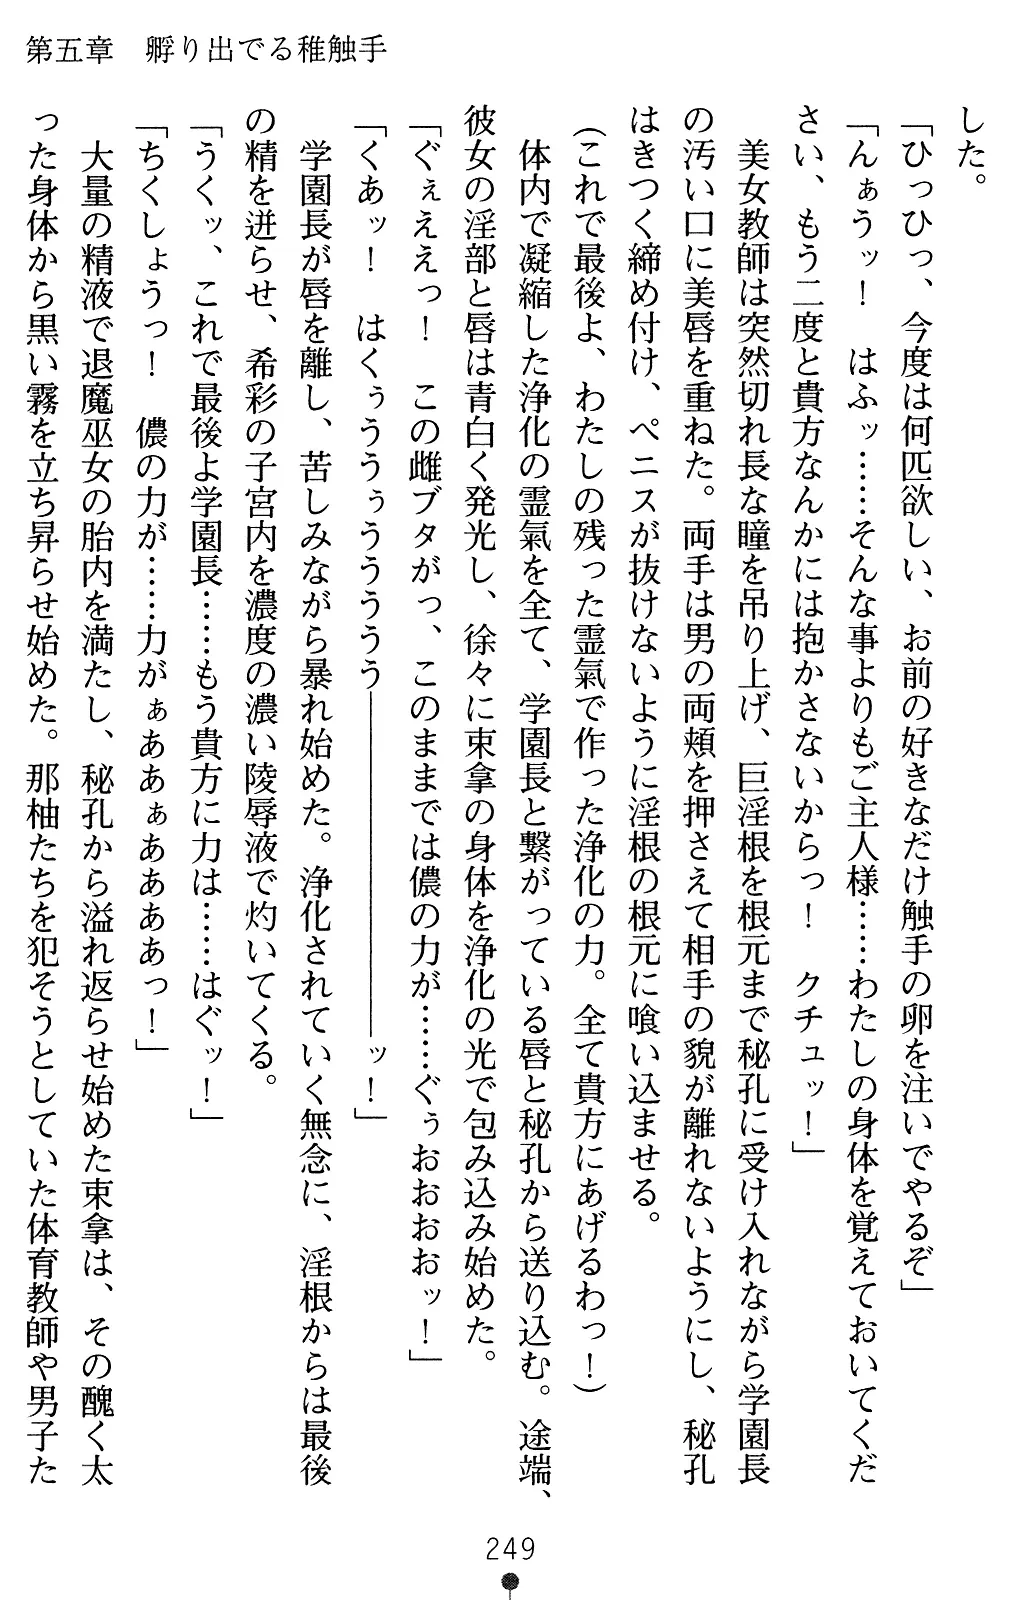 第五章　孵り出でる稚触手
した。
「ひっひっ、今度は何匹欲しい、お前の好きなだけ触手の卵を注いでやるぞ」
「んぁうッ！　はふッ……そんな事よりもご主人様……わたしの身体を覚えておいてくだ
さい、もう二度と貴方なんかには抱かさないからっ！　クチュッ！」
　美女教師は突然切れ長な瞳を吊り上げ、巨淫根を根元まで秘孔に受け入れながら学園長
の汚い口に美唇を重ねた。両手は男の両頬を押さえて相手の貌が離れないようにし、秘孔
はきつく締め付け、ペニスが抜けないように淫根の根元に喰い込ませる。
（これで最後よ、わたしの残った霊氣で作った浄化の力。全て貴方にあげるわっ！）
　体内で凝縮した浄化の霊氣を全て、学園長と繋がっている唇と秘孔から送り込む。途端、
彼女の淫部と唇は青白く発光し、徐々に束拿の身体を浄化の光で包み込み始めた。
「ぐぇええっ！　この雌ブタがっ、このままでは儂の力が……ぐぅおおおおッ！」
「くあッ！　はくぅううぅうううう――――――――ッ！」
　学園長が唇を離し、苦しみながら暴れ始めた。浄化されていく無念に、淫根からは最後
の精を迸らせ、希彩の子宮内を濃度の濃い陵辱液で灼いてくる。
「うくッ、これで最後よ学園長……もう貴方に力は……はぐッ！」
「ちくしょうっ！　儂の力が……力がぁああぁああああっ！」
　大量の精液で退魔巫女の胎内を満たし、秘孔から溢れ返らせ始めた束拿は、その醜く太
った身体から黒い霧を立ち昇らせ始めた。那柚たちを犯そうとしていた体育教師や男子た
249